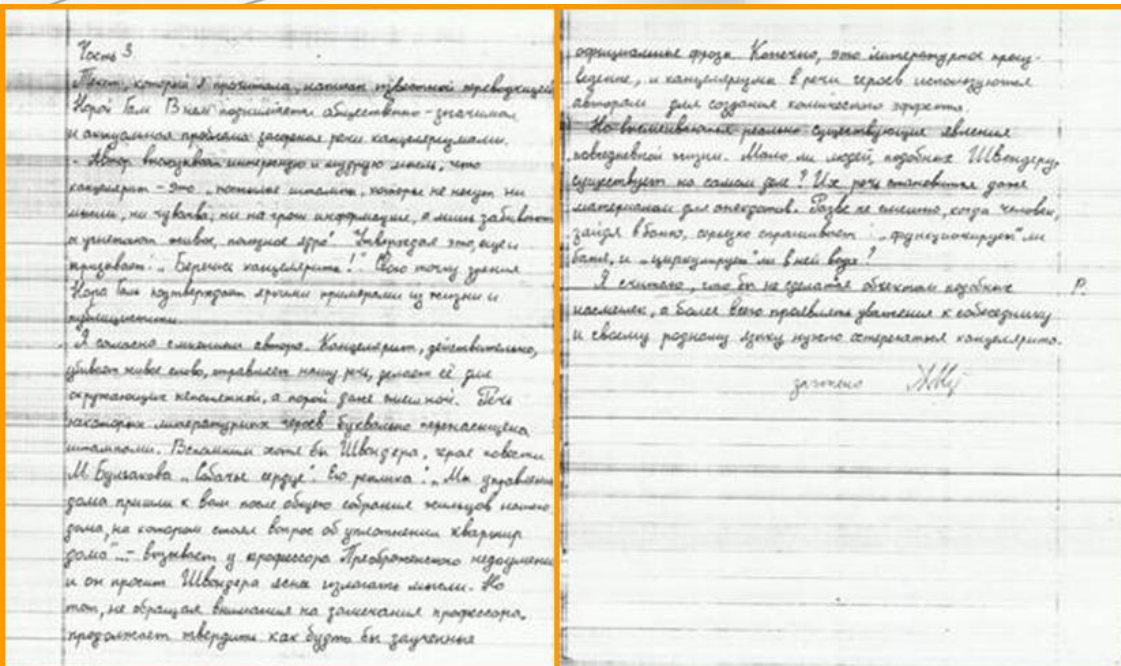 Часть 3.
Текст, который я прочитала, написан известной переводчицей
Норой Галь. В нем поднимается общественно-значимая
и актуальная проблема засорения речи канцеляризмами.
Автор высказывает интересную и мудрую мысль, что
канцелярит – это „ штампы, которые не несут ни
мысли, ни чувства, ни на грош информации, а лишь забивают
и угнетают живое, полезное ядро". Утверждая это, она
призывает: „Берегись канцелярита!" Свою точку зрения
Нора Галь подтверждает яркими примерами из жизни и
публицистики.
Я согласна с мнением автора. Канцелярит, действительно,
убивает живое слово, отравляет нашу речь, делает её для
окружающих непонятной, а порой даже смешной. Речь
некоторых литературных героев буквально перенасыщена
штампами. Вспомним хотя бы Швондера, героя повести
М. Булгакова „Собачье сердце". Его реплика: „Мы управление
дома пришли к вам после общего собрания жильцов нашего
дома, на котором стоял вопрос об уплотнении квартир
дома"... – вызывает у профессора Преображенского недоумение
и он просит Швондера яснее излагать мысли. Но
тот, не обращая внимания на замечания профессора,
продолжает твердить как будто бы заученные
официальные фразы. Конечно, это литературное произ-
ведение, и канцеляризмы в речи героев используются
автором для создания комического эффекта.
Но высмеиваются реально существующие явления
повседневной жизни. Мало ли людей, подобных Швондеру,
существует на самом деле? Их речь становится даже
материалом для анекдотов. Разве не смешно, когда человек,
зайдя в баню, серьезно спрашивает: „функционирует" ли
баня, и „циркулирует" ли в ней вода?
Я считаю, что бы не сделаться объектом подобных Р.
насмешек, а более всего проявлять уважения к собеседнику
и своему родному языку нужно остерегаться канцелярита.
зачтено